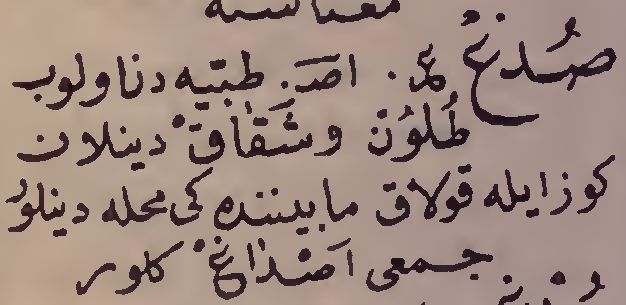 معناسنه
صُدْغْ عر. اصـ. طبّيه دن اولوب
طُلُوْن وشَقَاقْ دينلان
كوز ايله قولاق مابيننده كى محله دينلوُر
جمعى اَصْدَاغْ كلور